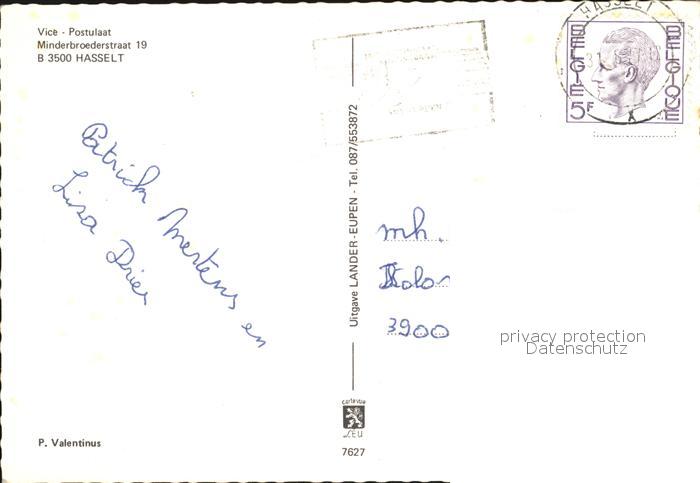 Vice - Postulaat
Minderbroederstraat 19
B 3500 HASSELT
HASSELT
BELGIE
BELGIQUE
5F
X
Patrick Mertens en
Lisa Dries
Uitgave LANDER-EUPEN - Tel. 087/553872
mh.
3900
privacy protection
Datenschutz
P. Valentinus
LEU
7627